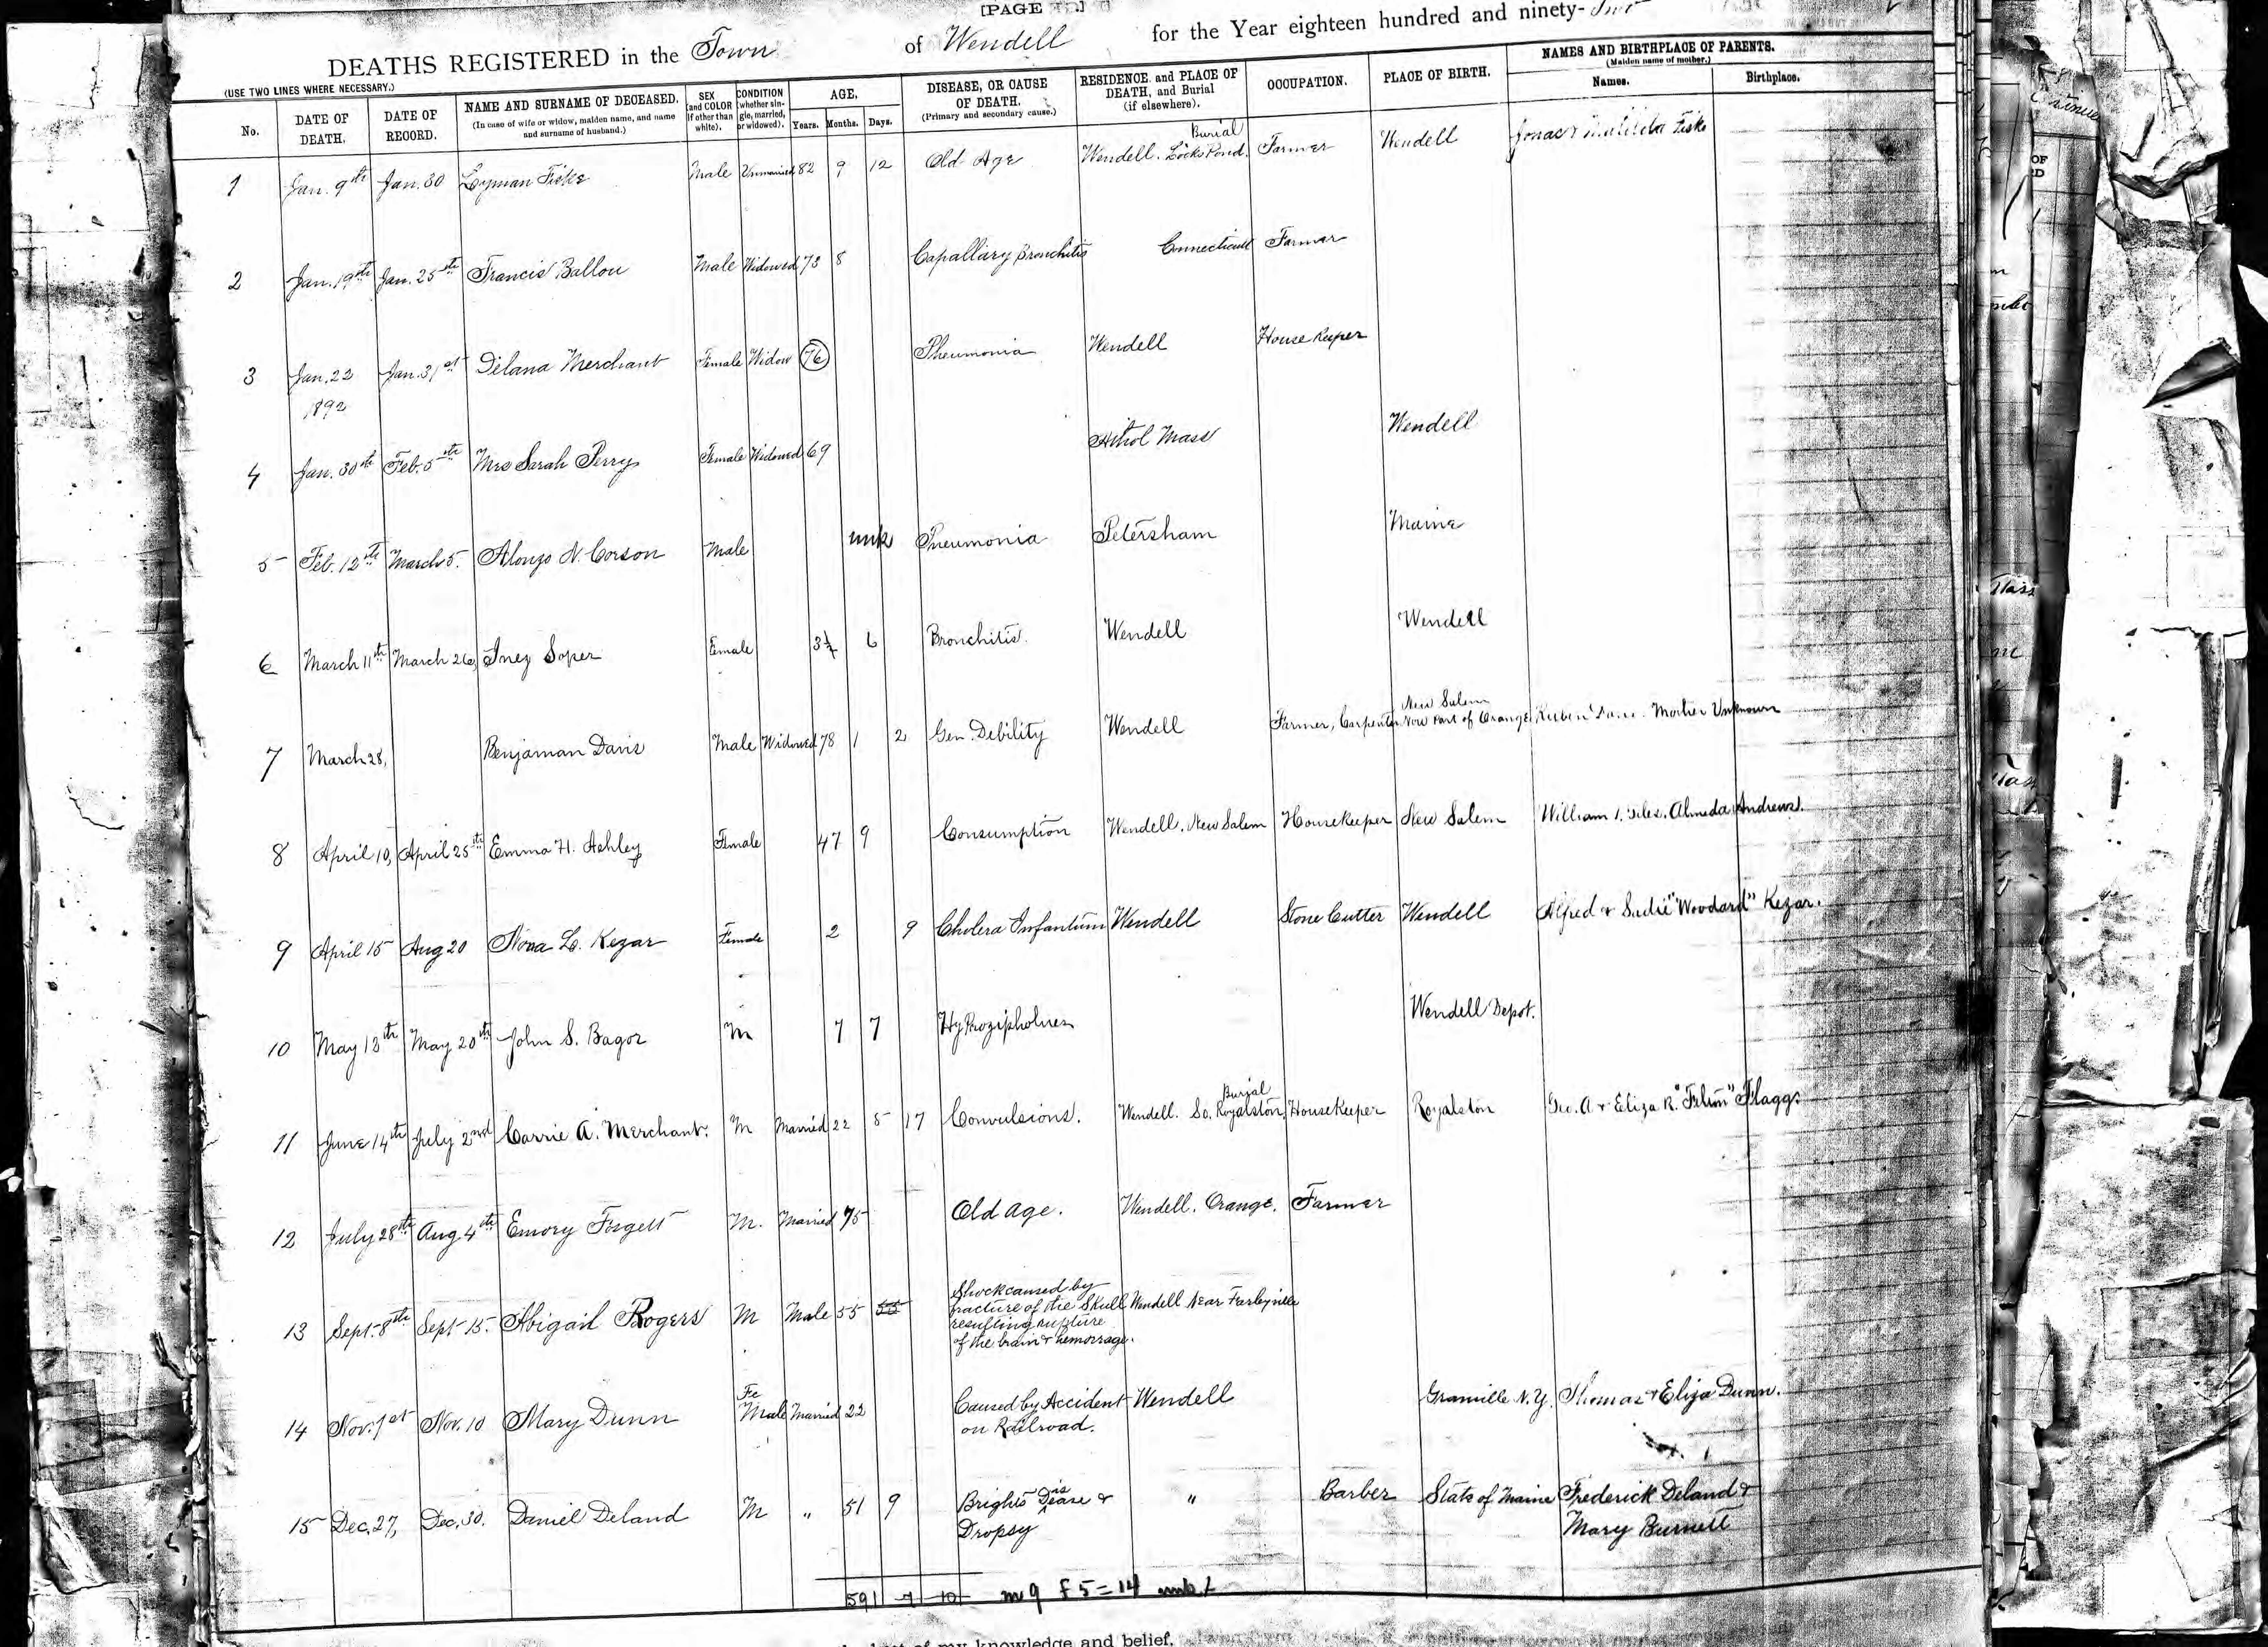 [PAGE
DEATHS REGISTERED in the Town of Wendell for the Year eighteen hundred and ninety-two
(USE TWO LINES WHERE NECESSARY.)
No. DATE OF DEATH. DATE OF RECORD. NAME AND SURNAME OF DECEASED. (In case of wife or widow, maiden name, and name and surname of husband.) SEX (and COLOR if other than white). CONDITION (whether single, married, or widowed). AGE, Years. Months. Days. DISEASE, OR CAUSE OF DEATH. (Primary and secondary cause.) RESIDENCE and PLACE OF DEATH, and Burial (if elsewhere). OCCUPATION. PLACE OF BIRTH. NAMES AND BIRTHPLACE OF PARENTS. (Maiden name of mother.) Names. Birthplace.
1 Jan. 9th Jan. 30 Lyman Fiske Male Unmarried 82 9 12 Old Age Wendell. Burial Locks Pond. Farmer Wendell Jonas & Fiske
2 Jan. 19th Jan. 25th Francis Ballou Male Widowed 73 8 Capallary Bronchitis Connecticutt Farmer
3 Jan. 22 1892 Jan. 31st Dilana Merchant Female Widow 76 Pneumonia Wendell House Keeper
4 Jan. 30th Feb. 5th Mrs Sarah Perry Female Widowed 69 Athol Mass Wendell
5 Feb. 12th March 5. Alonzo N. Corson Male unk Pneumonia Petersham Maine
6 March 11th March 26, Inez Soper Female 6 Bronchitis. Wendell Wendell
7 March 28, Benjaman Davis Male Widowed 78 1 2 Gen. Debility Wendell Farmer, Carpenter New Salem Now Part of Orange Mother Unknown
8 April 10, April 25th Emma H. Ashley Female 47 9 Consumption Wendell. New Salem Housekeeper New Salem William Almeda Andrews.
9 April 15 Aug 20 Nora L. Kezar Female 2 9 Cholera Infantum Wendell Stone Cutter Wendell Alfred & Sadie "Woodard" Kezar.
10 May 13th May 20th John S. Bagor M 7 7 Wendell Depot.
11 June 14th July 2nd Carrie A. Merchant. M Married 22 5 17 Convulsions. Wendell. Burial So. Royalston. Housekeeper Royalston Geo. A & Eliza R. Flagg.
12 July 28th Aug. 4th Emory M. Married 75 Old Age. Wendell. Orange. Farmer
13 Sept. 8th Sept 15. Abigail Rogers M Male 55 55 Shock caused by fracture of the Skull resulting rupture of the brain & hemorrage. Wendell Near Farleyville
14 Nov. 1st Nov. 10 Mary Dunn Fe Male Married 22 Caused by Accident on Railroad. Wendell Granville N.Y. Thomas & Eliza Dunn.
15 Dec. 27, Dec. 30. Daniel Deland M " 51 9 Brights Disease & Dropsy " Barber State of Maine Frederick Deland & Mary Burnell
591 7 10 m 9 f 5 = 14 unk 1
of my knowledge and belief.